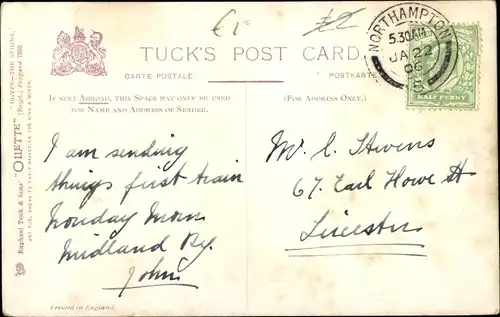 €1-
£2
NORTHAMPTON
5.30AM
JA 22
06
TUCK'S POST CARD.
CARTE POSTALE.
POSTKARTE
HALF PENNY
IF SENT ABROAD, THIS SPACE MAY ONLY BE USED
FOR NAME AND ADDRESS OF SENDER.
(FOR ADDRESS ONLY.)
I am sending
things first train
Monday Morn
Midland Ry.
John
Mr C. Stevens
67. Earl Howe St
Leicester
Raphael Tuck & Sons' "OILETTE" "EGYPT—THE SPHINX."
(Regd.) Postcard
ART PUBLISHERS TO THEIR MAJESTIES THE KING & QUEEN.
Printed in England.